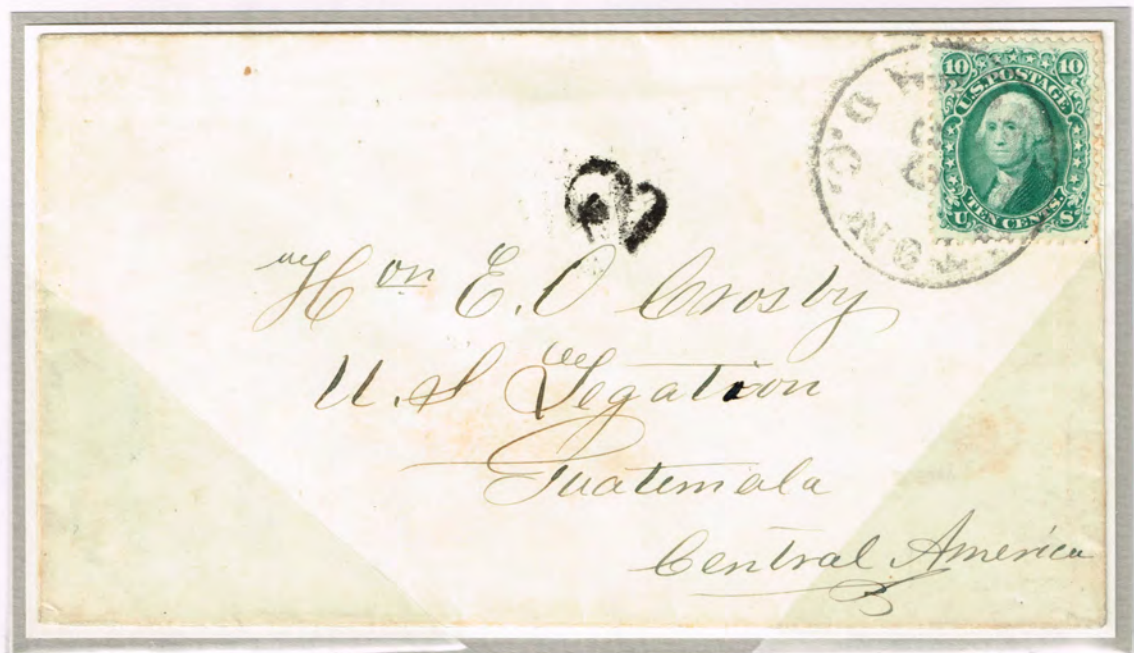 10 10
U.S. POSTAGE
TEN CENTS.
U S
N D.C.
2
Hon E. O Crosby
U. S Legation
Guatemala
Central America